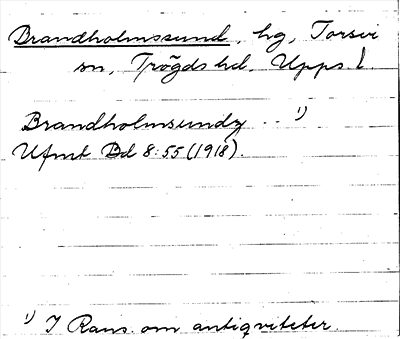 Brandholmssund, hg, Torsvi
sn, Trögds hd. Upps l.
Brandholmsundz - - ¹)
Ufmt Bd 8:55 (1918).
¹) I Rans. om antiqviteter.